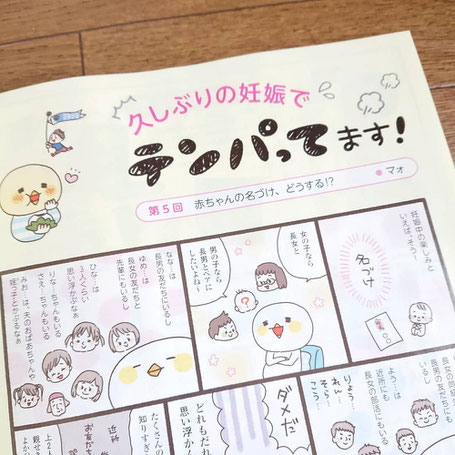 久しぶりの妊娠で
テンパってます!
第5回 赤ちゃんの名づけ、どうする!?
マオ
妊娠中の楽しみと
いえば、そう!
名づけ
女の子なら
長女と
男の子なら
長男とペアに
したいよね〜
なな…は
長男の友だちにいるし
ゆめ…は
長女の友だちと
先輩にもいるし
ひな…は
3人くらい
思い浮かぶなぁ
りな…ちゃんもいる
さえ…ちゃんもいる
みお…は、夫のおばあちゃん
姪っ子とかぶるなぁ
長男の友だちにも
いるし
よう…は
近所にも
長女の部活にもいる
りょう…
れん…
そら…
こう…
ダメだ
どれもだれ
思い浮か
たくさんの
知りすぎ
近所
お友だち
上2人
親せき